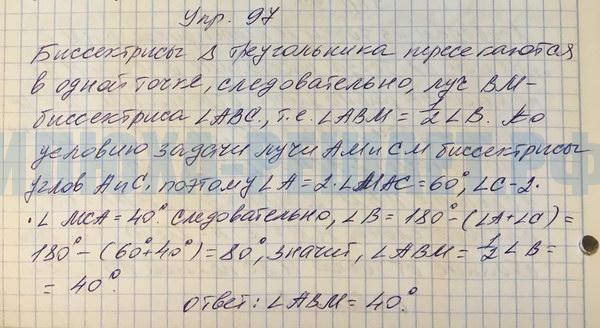 Упр. 97
Биссектрисы Δ треугольника пересекаются
в одной точке, следовательно, луч BM-
биссектриса ∠ABC, т.е. ∠ABM = 1/2 ∠B. По
условию задачи лучи AM и CM биссектрисы
углов A и C, поэтому ∠A = 2·∠MAC = 60°, ∠C - 2·
·∠ MCA = 40° следовательно, ∠B = 180° - (∠A + ∠C) =
180° - (60° + 40°) = 80°, значит, ∠ABM = 1/2 ∠B =
= 40°.
Ответ: ∠ABM = 40°.